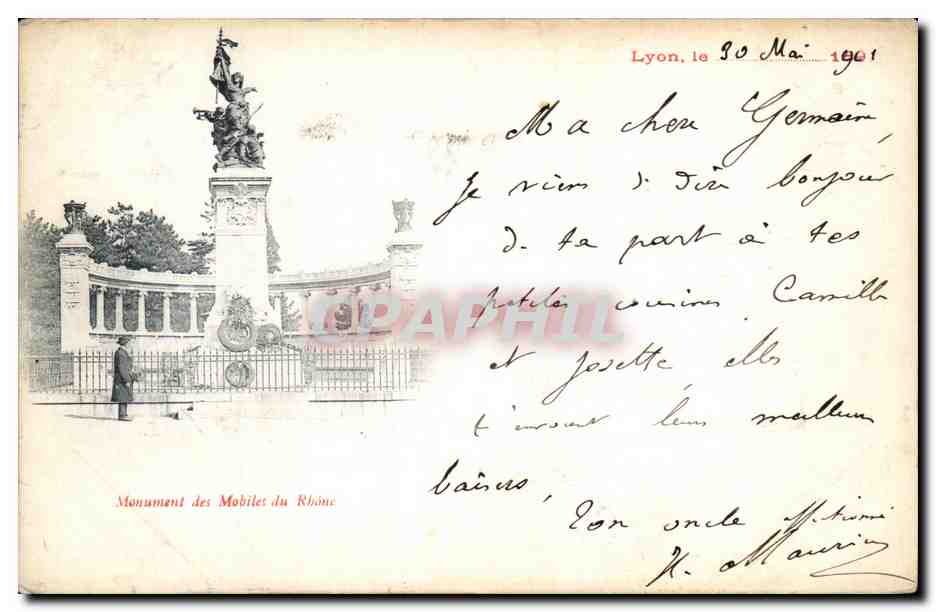 Lyon, le 30 Mai 1901
Ma chere Germaine,
Je viens te dire bonjour
de ta part à tes
petites cousines Camille
et Josette elles
t'envoient leurs meilleurs
baisers,
Ton oncle affectionné
H. Maurin
Monument des Mobiles du Rhône
CPAPHIL